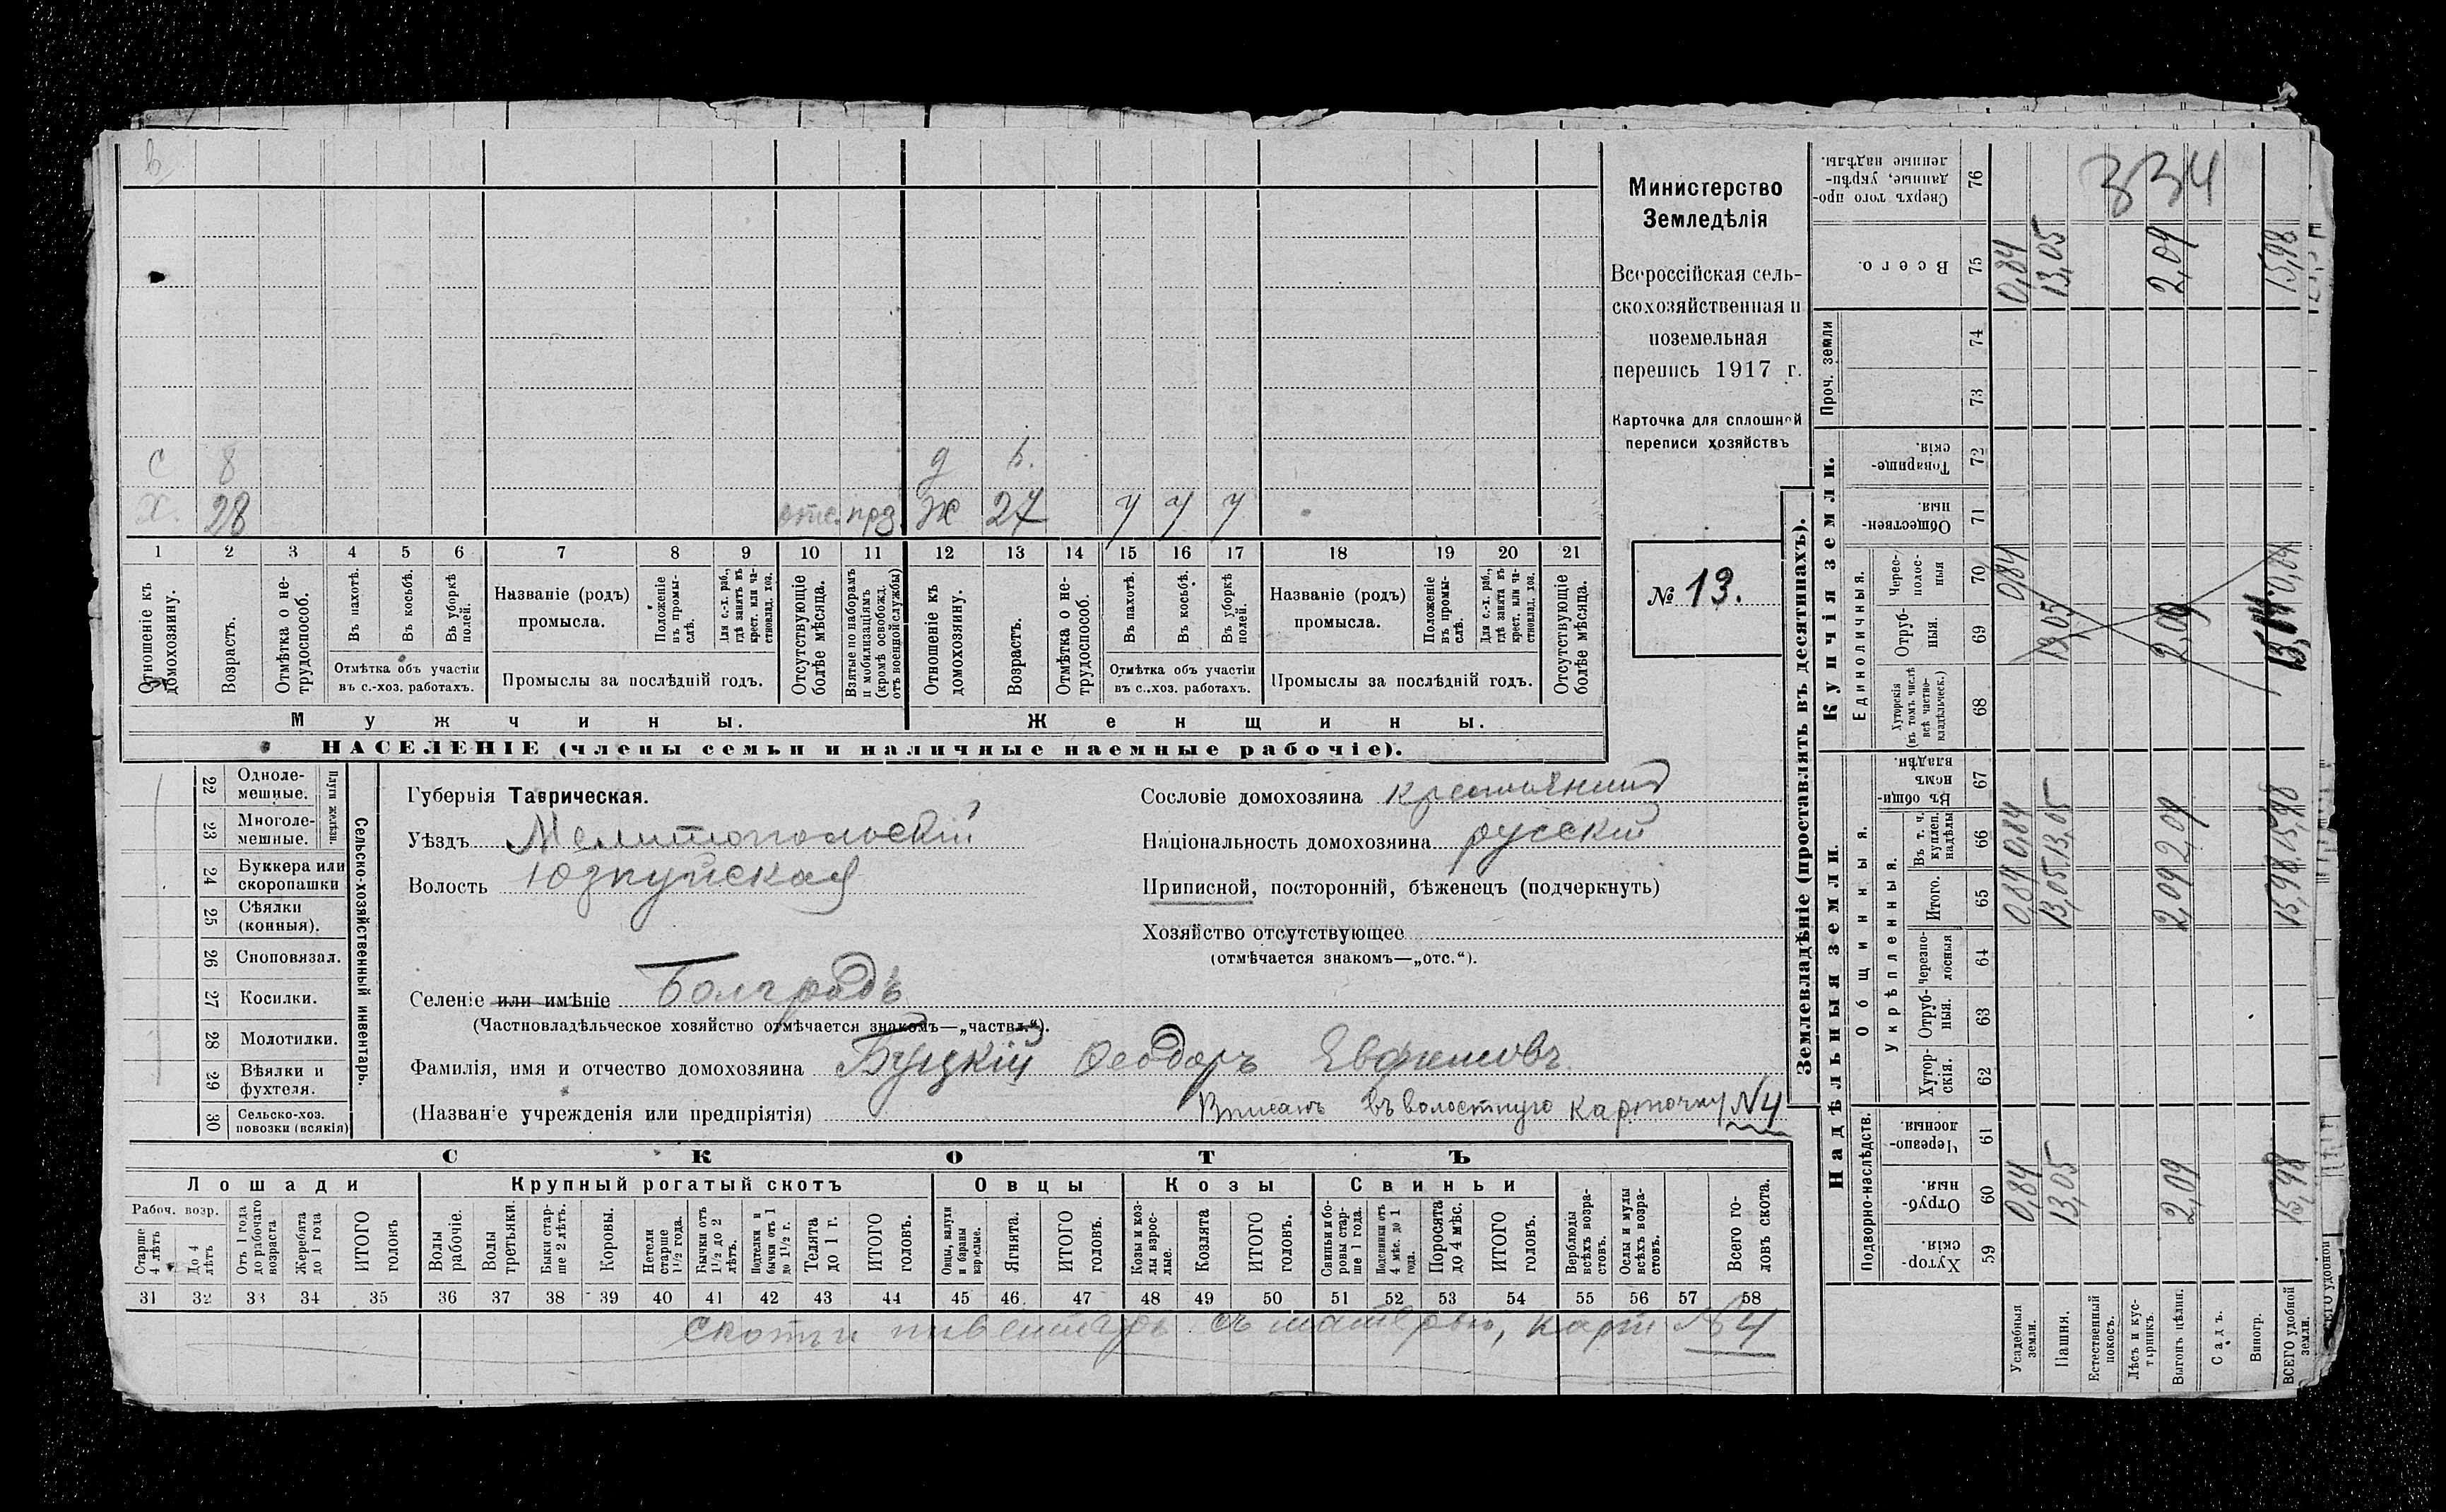 с 8 д 6.
х. 28 отс. прз. ж 27 у у у
1 2 3 4 5 6 7 8 9 10 11 12 13 14 15 16 17 18 19 20 21
Отношеніе къ домохозяину.
Возрастъ.
Отмѣтка о не-
трудоспособ.
Въ пахотѣ.
Въ косьбѣ.
Въ уборкѣ
полей.
Отмѣтка объ участіи
въ с.-хоз. работахъ.
Названіе (родъ)
промысла.
Положеніе
въ промы-
слѣ.
Для с.-х. раб.,
гдѣ занятъ въ
крест. или ча-
стновлад. хоз.
Промыслы за послѣдній годъ.
Отсутствующіе
болѣе мѣсяца.
Взятые по наборамъ
и мобилизаціямъ
(кромѣ освобожд.
отъ военной службы)
Отношеніе къ
домохозяину.
Возрастъ.
Отмѣтка о не-
трудоспособ.
Въ пахотѣ.
Въ косьбѣ.
Въ уборкѣ
полей.
Отмѣтка объ участіи
въ с..хоз. работахъ.
Названіе (родъ)
промысла.
Положеніе
въ промы-
слѣ.
Для с.-х. раб.,
гдѣ занята въ
крест. или ча-
стновлад. хоз.
Промыслы за послѣдній годъ.
Отсутствующіе
болѣе мѣсяца.
Мужчины.
Женщины.
НАСЕЛЕНІЕ (члены семьи и наличные наемные рабочіе).
Министерство
Земледѣлія
Всероссійская сель-
скохозяйственная и
поземельная
перепись 1917 г.
Карточка для сплошной
переписи хозяйствъ
№ 13.
22 Одноле-
мешные.
23 Многоле-
мешные.
Плуги желѣзн.
24 Буккера или
скоропашки
25 Сѣялки
(конныя).
26 Сноповязал.
27 Косилки.
28 Молотилки.
29 Вѣялки и
фухтеля.
30 Сельско-хоз.
повозки (всякія)
Сельско-хозяйственный инвентарь.
Губернія Таврическая.
Уѣздъ Мелитопольскій
Волость Юзкуйская
Селеніе или имѣніе Болградъ
(Частновладѣльческое хозяйство отмѣчается знакомъ—„частвл.“).
Фамилія, имя и отчество домохозяина Буцкій Феодоръ Евфимовъ.
(Названіе учрежденія или предпріятія)
Вписанъ въ волостную карточку №4
Сословіе домохозяина крестьянинъ
Національность домохозяина русскій
Приписной, посторонній, бѣженецъ (подчеркнуть)
Хозяйство отсутствующее
(отмѣчается знакомъ—„отс.“).
СКОТЪ
Лошади Крупный рогатый скотъ Овцы Козы Свиньи
Рабоч. возр.
Старше
4 лѣтъ
До 4
лѣтъ
Отъ 1 года
до рабочаго
возраста
Жеребята
до 1 года
ИТОГО
головъ
Волы
рабочіе.
Волы
третьяки.
Быки стар-
ше 2 лѣтъ.
Коровы.
Нетели
старше
1½ года.
Бычки отъ
1½ до 2
лѣтъ.
Подтелки и
бычки отъ 1
до 1½ г.
Телята
до 1 г.
ИТОГО
головъ.
Овцы, валухи
и бараны
взрослые.
Ягнята.
ИТОГО
головъ.
Козы и коз-
лы взрос-
лые.
Козлята
ИТОГО
головъ.
Свиньи и бо-
ровы стар-
ше 1 года.
Подсвинки отъ
4 мѣс. до 1
года.
Поросята
до 4 мѣс.
ИТОГО
головъ.
Верблюды
всѣхъ возра-
стовъ.
Ослы и мулы
всѣхъ возра-
стовъ.
Всего го-
ловъ скота.
31 32 33 34 35 36 37 38 39 40 41 42 43 44 45 46 47 48 49 50 51 52 53 54 55 56 57 58
скотъ и инвентарь съ матерью, карт №4
Землевладѣніе (проставлять въ десятинахъ).
Надѣльныя земли. Купчія земли. Проч. земли
Подворно-наслѣдств.
Общинныя.
Укрѣпленныя.
Единоличныя.
Хутор-
скія. 59
Отруб-
ныя. 60
Черезпо-
лосныя. 61
Хутор-
скія. 62
Отруб-
ныя. 63
Черезпо-
лосныя 64
Итого. 65
Въ т. ч.
куплен.
надѣлы 66
Въ общи-
номъ
владѣн. 67
Хуторскія
(въ томъ числѣ
всѣ частно-
владѣльческ.) 68
Отруб-
ныя. 69
Черес-
полос-
ныя 70
Обществен-
ныя. 71
Товарище-
скія. 72
73
74
Всего. 75
Сверхъ того про-
данные, укрѣп-
ленные надѣлы. 76
334
Усадебныя
земли. 0,84 0,84 0,84 0,84 0,84
Пашня. 13,05 13,05 13,05 13,05 13,05
Естественный
покосъ.
Лѣсъ и кус-
тарникъ.
Выгонъ цѣлин. 2,09 2,09 2,09 2,09 2,09
Садъ.
Виногр.
ВСЕГО удобной
земли. 15,98 15,98 15,98 15,98